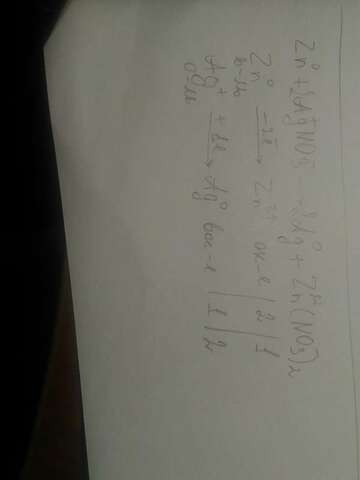 Zn⁰ + 2Ag⁺NO₃ → 2Ag⁰ + Zn²⁺(NO₃)₂
Zn⁰ −2e→ Zn²⁺ ок-е | 2 | 1
в-ль
Ag⁺ +1e→ Ag⁰ вос-е | 1 | 2
о-ль